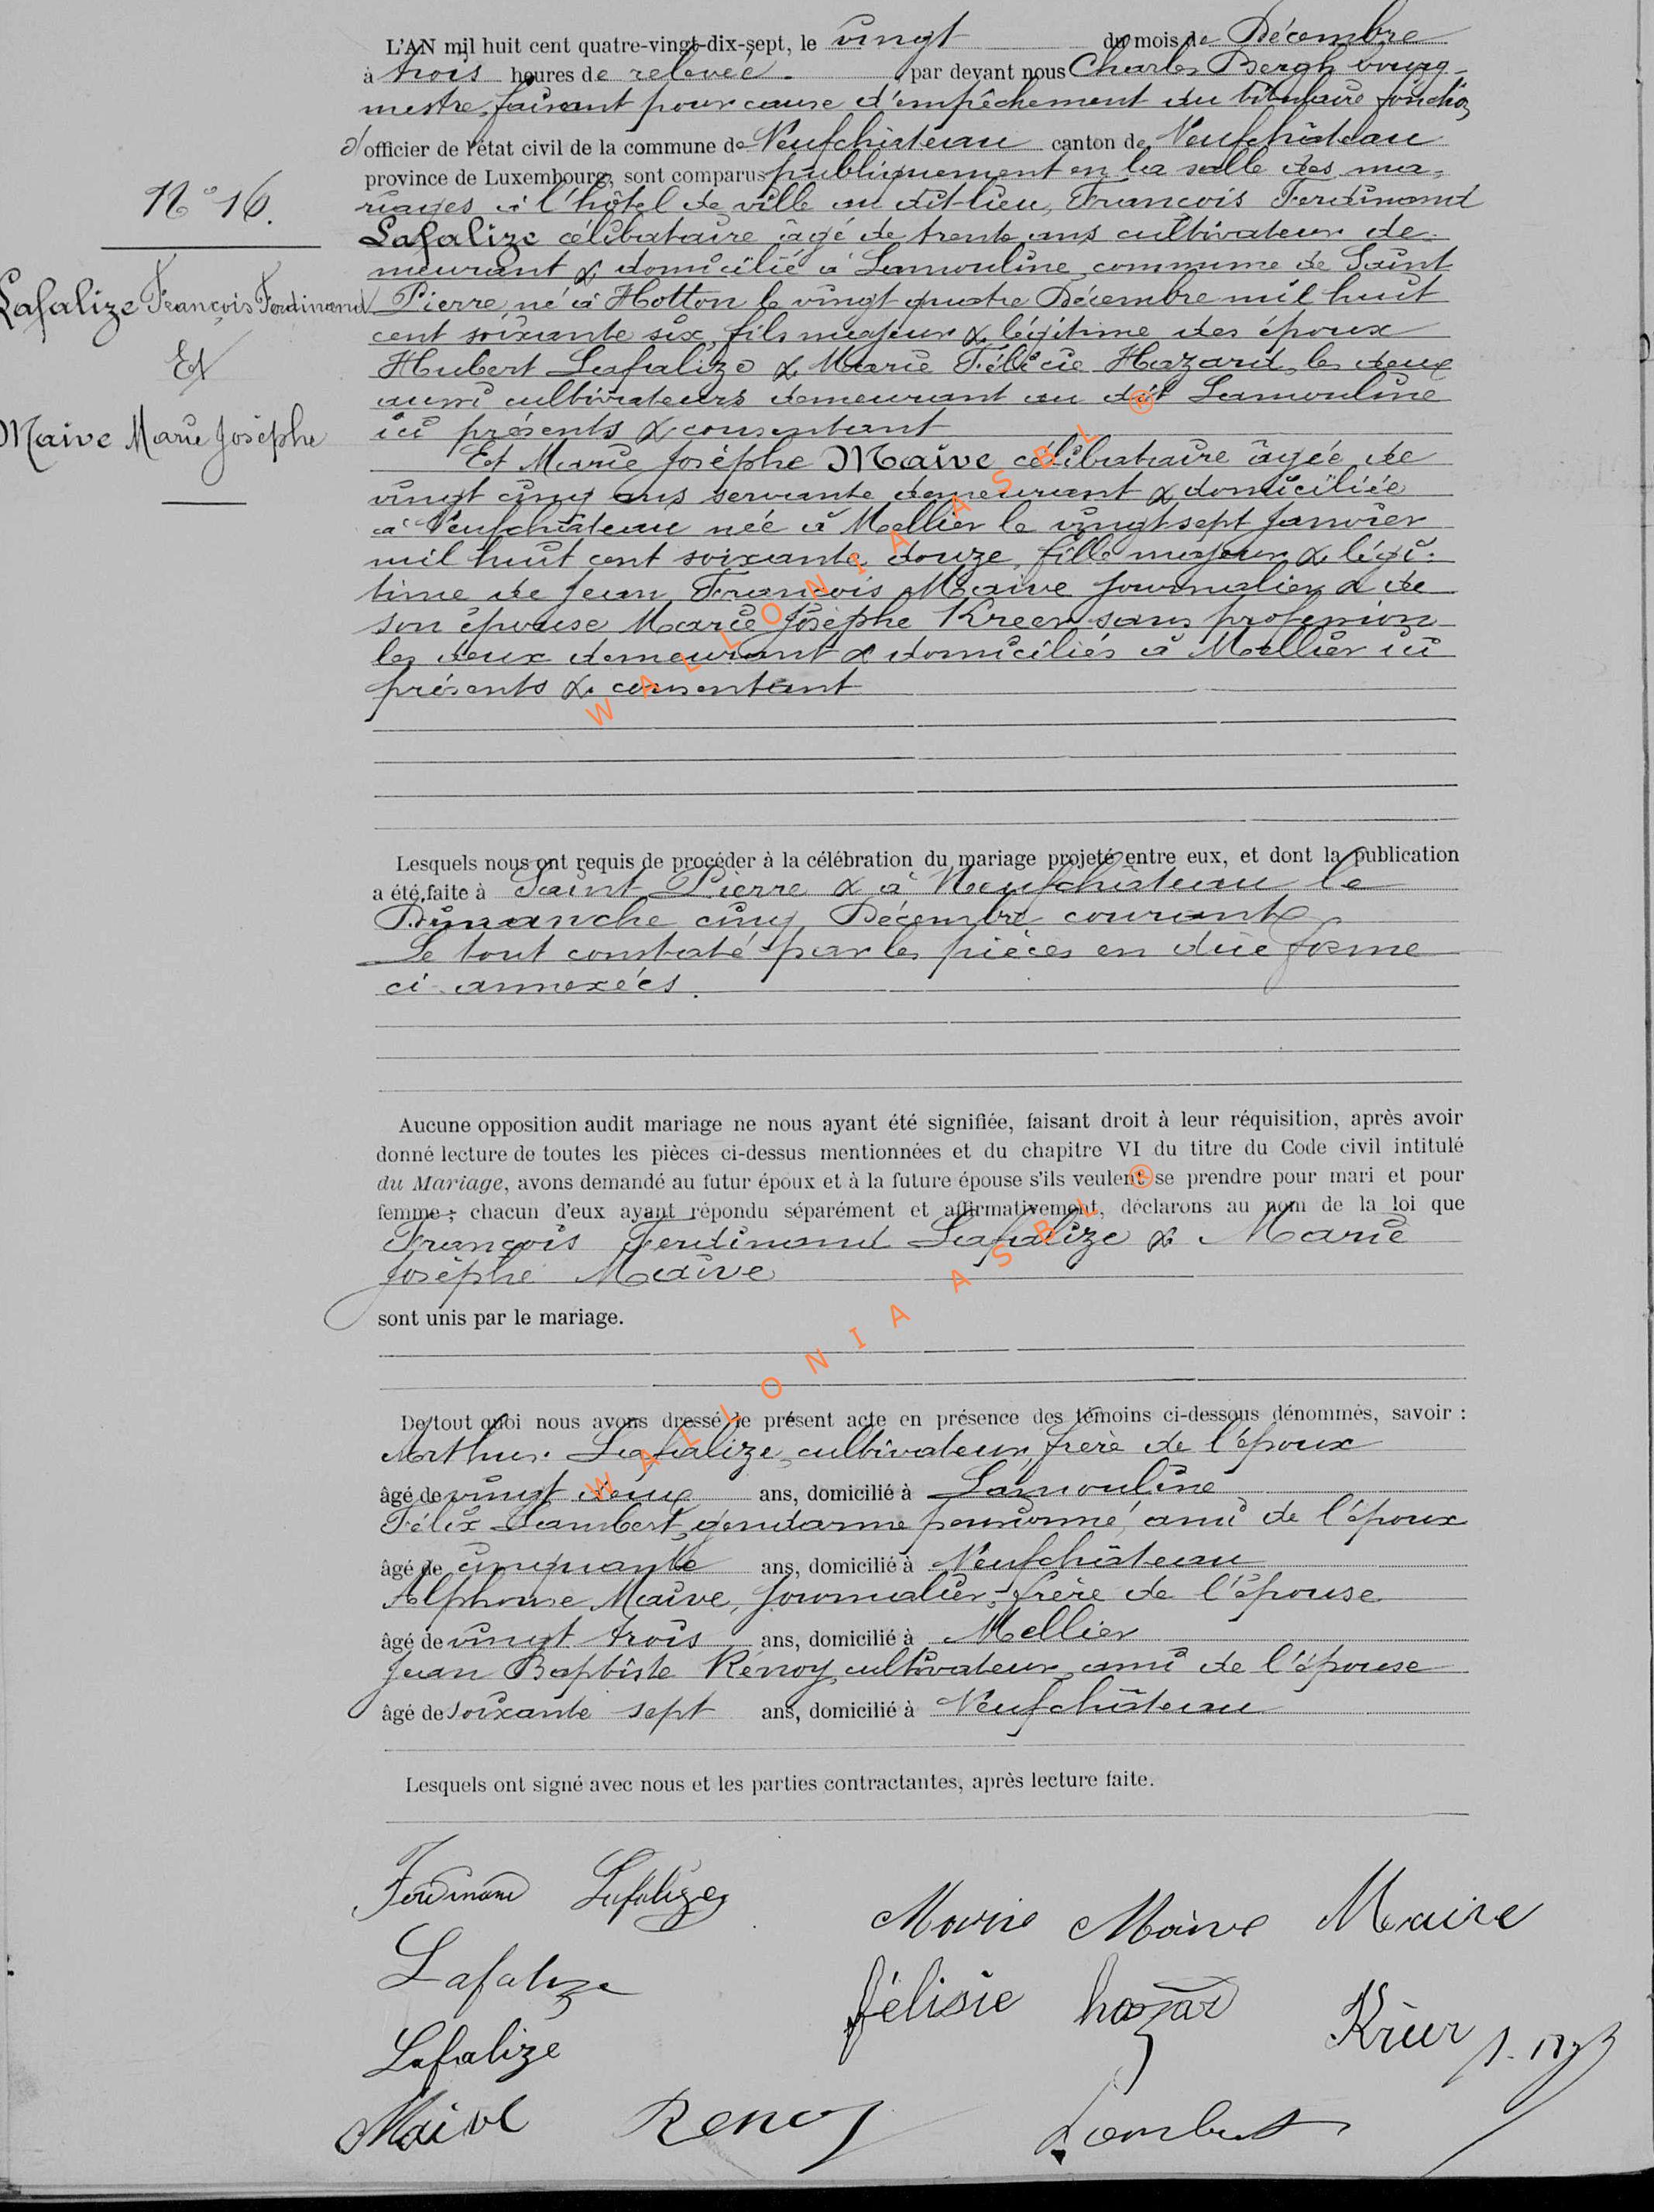 L'AN mil huit cent quatre-vingt-dix-sept, le vingt du mois de Décembre
à trois heures de relevée par devant nous Charles Bergh bourg-
mestre faisant pour cause d'empêchement du titulaire
d'officier de l'état civil de la commune de Neufchâteau canton de Neufchâteau
province de Luxembourg, sont comparus publiquement en la salle des ma-
N° 16.
riages à l'hôtel de ville au dit lieu, François Ferdinand
Lafalize célibataire âgé de trente ans cultivateur de-
meurant & domicilié à Lamouline commune de Saint
Lafalize François Ferdinand
Pierre, né à Hotton le vingt quatre Décembre mil huit
cent soixante six, fils majeur & légitime des époux
Et
Hubert Lafalize & Marie Félicie Hazard, les deux
aussi cultivateurs demeurant au dit Lamouline
Maive Marie Josèphe
ici présents & consentant
Et Marie Josèphe Maive célibataire âgée de
vingt cinq ans servante demeurant & domiciliée
à Neufchâteau née à Mellier le vingt sept Janvier
mil huit cent soixante douze, fille majeur & légi-
time de Jean François Maive journalier & de
son épouse Marie Josèphe Kreer sans profession
les deux demeurant & domiciliés à Mellier ici
présents & consentant
WALLONIA ASBL ®
Lesquels nous ont requis de procéder à la célébration du mariage projeté entre eux, et dont la publication
a été faite à Saint Pierre & à Neufchâteau le
Dimanche cinq Décembre courant
Le tout constaté par les pièces en due forme
ci annexées.
Aucune opposition audit mariage ne nous ayant été signifiée, faisant droit à leur réquisition, après avoir
donné lecture de toutes les pièces ci-dessus mentionnées et du chapitre VI du titre du Code civil intitulé
du Mariage, avons demandé au futur époux et à la future épouse s'ils veulent se prendre pour mari et pour
femme ; chacun d'eux ayant répondu séparément et affirmativement, déclarons au nom de la loi que
François Ferdinand Lafalize & Marie
Josèphe Maive
sont unis par le mariage.
WALLONIA ASBL ®
De tout quoi nous avons dressé le présent acte en présence des témoins ci-dessous dénommés, savoir :
Arthur Lafalize, cultivateur, frère de l'époux
âgé de vingt deux ans, domicilié à Lamouline
Félix Lambert, gendarme pensionné, ami de l'époux
âgé de cinquante ans, domicilié à Neufchâteau
Alphonse Maive, journalier, frère de l'épouse
âgé de vingt trois ans, domicilié à Mellier
Jean Baptiste Rénoy, cultivateur, ami de l'épouse
âgé de soixante sept ans, domicilié à Neufchâteau
Lesquels ont signé avec nous et les parties contractantes, après lecture faite.
Ferdinand Lafalize
Marie Maive Maive
Lafalize
félisie hazar
Lafalize
Maive Renoy Lambert